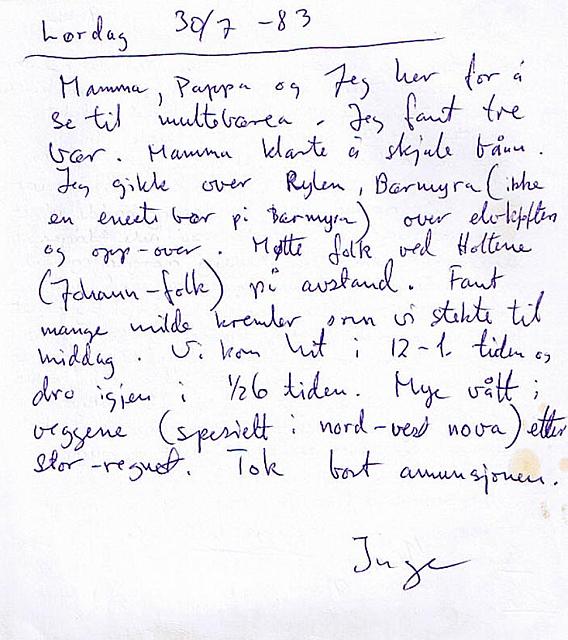 Lørdag 30/7 -83
Mamma, Pappa og Jeg her for å
se til multebærea. Jeg fant tre
bær. Mamma klarte å skjule bånn.
Jeg gikk over Rylen, Bærmyra (ikke
en eneste bær på Bærmyra) over
og opp-over. Møtte folk ved Holtene
(Johann-folk) på avstand. Fant
mange milde kremler som vi stekte til
middag. Vi kom hit i 12-1 tiden og
dro igjen i 1/2 6 tiden. Mye vått i
veggene (spesielt i nord-vest nova) etter
stor-regnet. Tok bort amunsjonen.
Inge